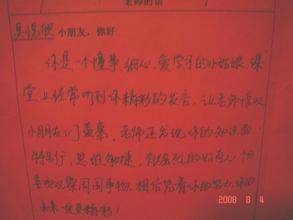 老师的话
小朋友，你好
你是一个懂事、细心、爱学习的小姑娘，课
堂上经常听到你精彩的发言，让老师喜欢
小朋友们羡慕。老师还发现你的知识面
特别广，思维敏捷，
喜欢观察周围事物，相信凭着你的努力，你的
未来一定更精彩！
2008 8 4